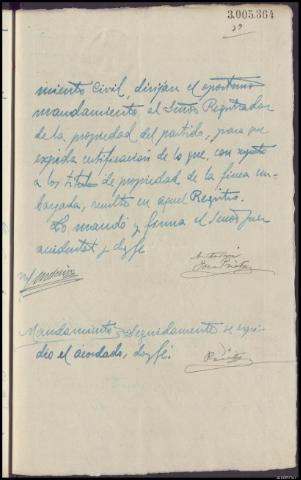 3.005.364
29
miento Civil, dirijan el oportuno
mandamiento al Señor Registrador
de la propiedad del partido, para que
expida certificación de lo que, con
a los titul de propiedad de la finca em-
bargada, resulte en aquel Registro.
Lo mandó y firma el Señor Juez
accidental y doy fé
Ante mí
Mandamiento = Seguidamente se expi-
dió el acordado, doy fé.